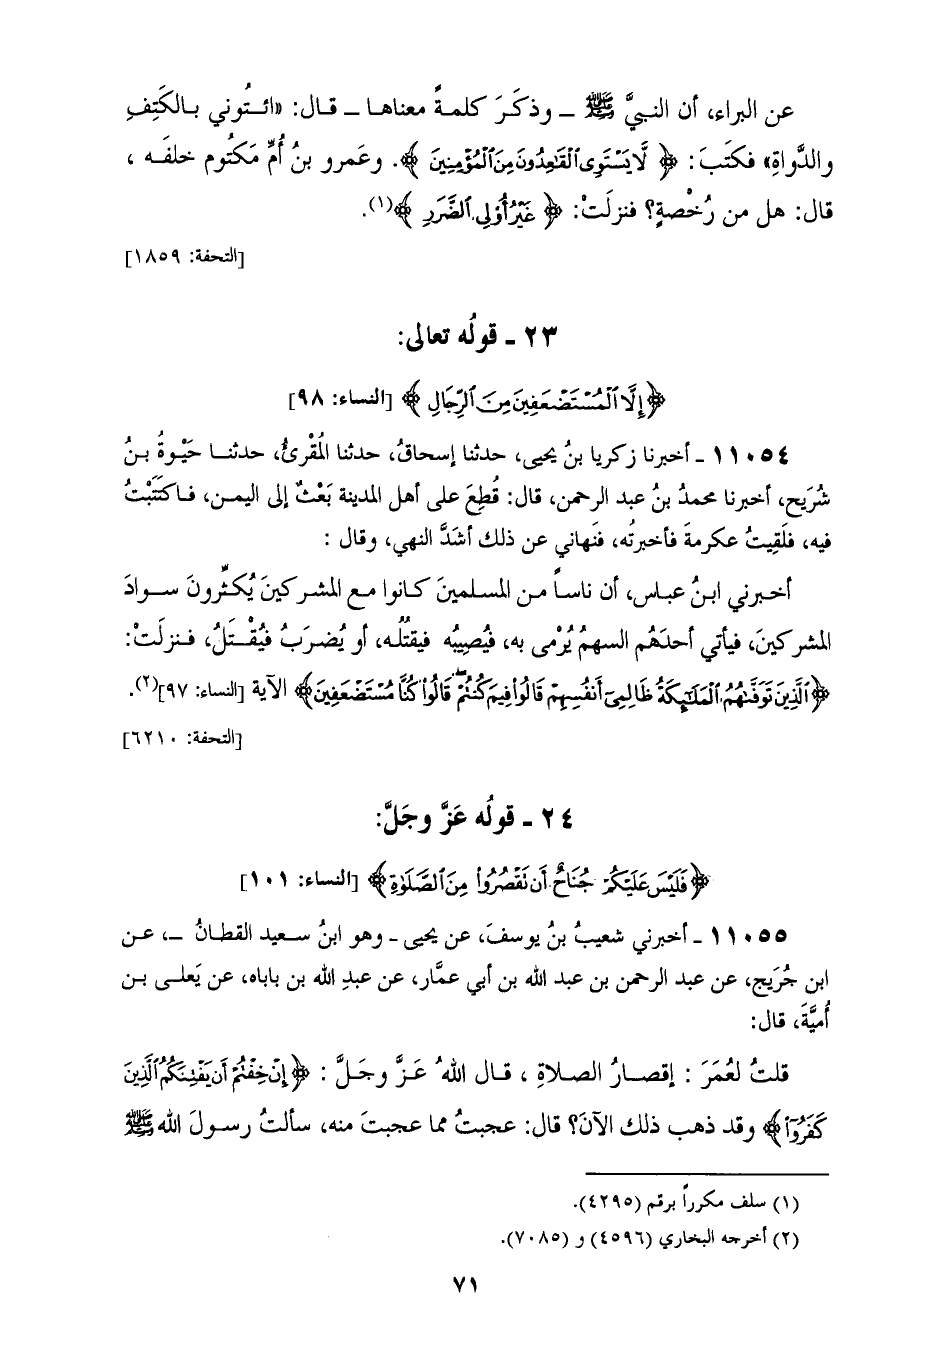 عن البراء، أن النبيَّ ﷺ ـ وذكَرَ كلمةً معناها ـ قال: «ائتُوني بالكَتِفِ
والدَّواةِ» فكتَبَ: ﴿ لَّا يَسْتَوِى ٱلْقَٰعِدُونَ مِنَ ٱلْمُؤْمِنِينَ ﴾. وعَمرو بنُ أُمِّ مَكتُوم خلفَه ،
قال: هل من رُخْصةٍ؟ فنزلَتْ: ﴿ غَيْرُ أُو۟لِى ٱلضَّرَرِ ﴾(١).
[التحفة: ١٨٥٩]
٢٣ ـ قولُه تعالى:
﴿ إِلَّا ٱلْمُسْتَضْعَفِينَ مِنَ ٱلرِّجَالِ ﴾ [النساء: ٩٨]
١١٠٥٤ ـ أخبرنا زكريا بنُ يحيى، حدثنا إسحاقُ، حدثنا المُقْرئُ، حدثنا حَيْوةُ بنُ
شُرَيح، أخبرنا محمدُ بنُ عبد الرحمن، قال: قُطِعَ على أهل المدينة بَعْثٌ إلى اليمن، فاكتَتَبْتُ
فيه، فلَقِيتُ عكرمةَ فأخبرتُه، فنَهاني عن ذلك أشدَّ النهي، وقال :
أخبرني ابنُ عباس، أن ناساً من المسلمينَ كانوا مع المشركينَ يُكثِّرونَ سوادَ
المشركينَ، فيأتي أحدَهُم السهمُ يُرْمى به، فيُصِيبُه فيقتُلُه، أو يُضرَبُ فيُقْتَلُ، فنزلَتْ:
﴿ ٱلَّذِينَ تَوَفَّىٰهُمُ ٱلْمَلَٰٓئِكَةُ ظَالِمِىٓ أَنفُسِهِمْ قَالُوا۟ فِيمَ كُنتُمْ ۖ قَالُوا۟ كُنَّا مُسْتَضْعَفِينَ﴾ الآية [النساء: ٩٧](٢).
[التحفة: ٦٢١٠]
٢٤ ـ قولُه عَزَّ وجَلَّ:
﴿ فَلَيْسَ عَلَيْكُمْ جُنَاحٌ أَن تَقْصُرُوا۟ مِنَ ٱلصَّلَوٰةِ ﴾ [النساء: ١٠١]
١١٠٥٥ ـ أخبرني شعيبُ بنُ يوسفَ، عن يحيى ـ وهو ابنُ سعيد القطانُ ـ، عن
ابن جُرَيج، عن عبد الرحمن بن عبد الله بن أبي عمَّار، عن عبدِ الله بن باباه، عن يَعلى بن
أُميَّةَ، قال:
قلتُ لعُمَرَ : إقصارُ الصلاةِ ، قال اللهُ عَزَّ وجَلَّ : ﴿ إِنْ خِفْتُمْ أَن يَفْتِنَكُمُ ٱلَّذِينَ
كَفَرُوٓا۟﴾ وقد ذهب ذلك الآنَ؟ قال: عجبتُ مما عجبتَ منه، سألتُ رسولَ الله ﷺ
(١) سلف مكرراً برقم (٤٢٩٥).
(٢) أخرجه البخاري (٤٥٩٦) و (٧٠٨٥).
٧١